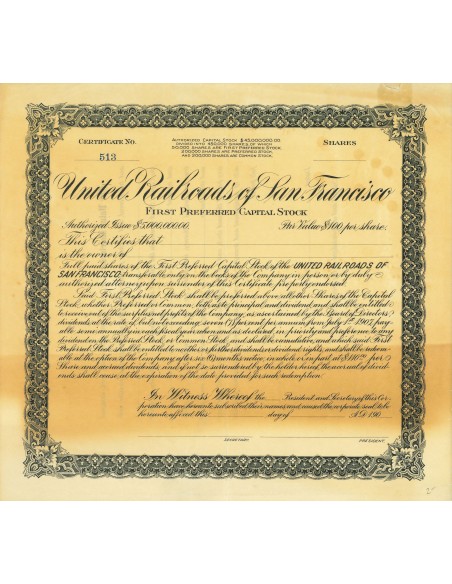 CERTIFICATE NO.
513
AUTHORIZED CAPITAL STOCK $45,000,000.00.
DIVIDED INTO 450,000 SHARES, OF WHICH
50,000 SHARES ARE FIRST PREFERRED STOCK,
200,000 SHARES ARE PREFERRED STOCK,
AND 200,000 SHARES ARE COMMON STOCK.
SHARES
United Railroads of San Francisco
FIRST PREFERRED CAPITAL STOCK
Authorized Issue $5,000,000.00. Par Value $100 per share.
This Certifies that
is the owner of
full paid shares of the First Preferred Capital Stock of the UNITED RAILROADS OF
SAN FRANCISCO, transferable only on the books of the Company in person or by duly
authorized attorney upon surrender of this Certificate properly endorsed.
Said First Preferred Stock shall be preferred above all other Shares of the Capital
Stock, whether Preferred or Common, both as to principal and dividend, and shall be entitled
to receive out of the surplus profits of the Company, as ascertained by the Board of Directors
dividends, at the rate of but not exceeding seven (7) per cent per annum from July 1st 1907, pay-
able semi-annually on such days as fixed and when and as declared, in priority and preference to any
dividend on the Preferred Stock or Common Stock, and shall be cumulative, and which said First
Preferred Stock shall be entitled to no other or further dividends or dividend rights, and shall be redeem-
able at the option of the Company after six (6) months notice in whole or in part at $110.00 per
Share and accrued dividends, and if not so surrendered by the holder hereof the accrual of divid-
ends shall cease at the expiration of the date provided for such redemption.
In Witness Whereof the President and Secretary of this Cor-
poration have hereunto subscribed their names and caused the corporate seal to be
hereunto affixed this day of A.D. 190
SECRETARY. PRESIDENT.